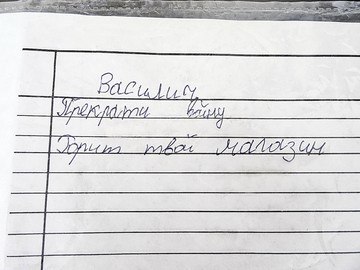 Василич
Прекрати войну
Горит твой магазин